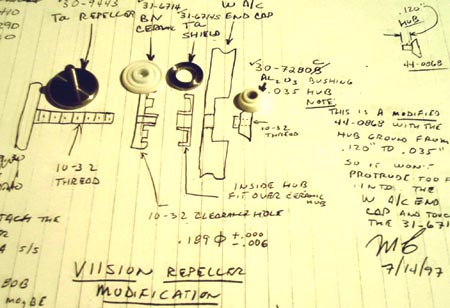 30-9443
Ta REPELLER
31-6714
BN
CERAMIC
31-6745
Ta
SHIELD
W A/C
END CAP
30-7280
AL2O3 BUSHING
.035 HUB
NOTE
10-32
THREAD
.120"
HUB
44-0868
THIS IS A MODIFIED
44-0868 WITH THE
HUB GROUND FROM
.120" TO .035"
SO IT WON'T
PROTRUDE TOO F
INTO THE
W A/C END
CAP AND TOUC
THE 31-671
MB
7/14/97
10-32
THREAD
INSIDE HUB
FIT OVER CERAMIC
HUB
10-32 CLEARANCE HOLE
.189 Φ +.000
-.006
TACH THE
S/S
VIISION REPELLER
MODIFICATION